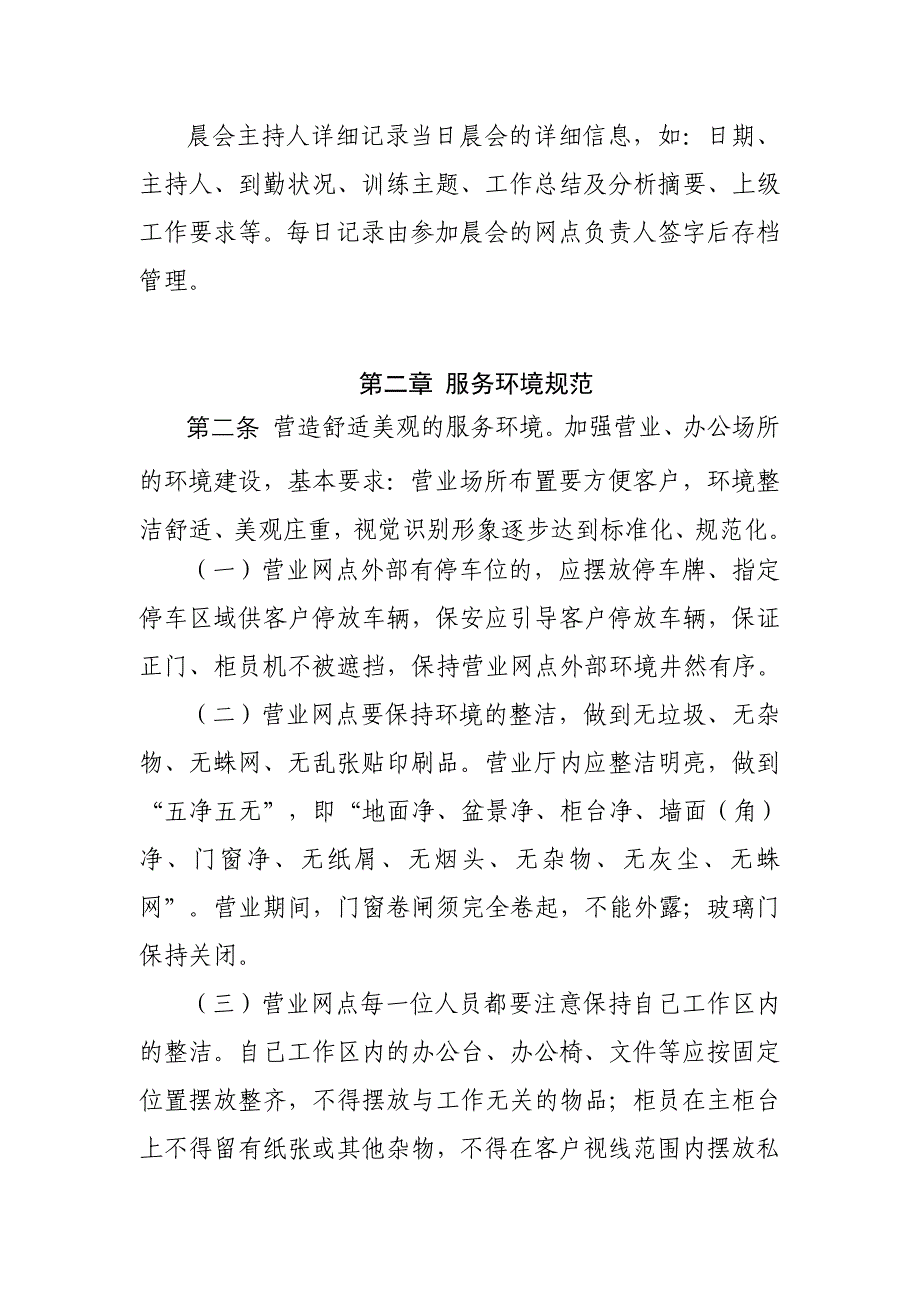 晨会主持人详细记录当日晨会的详细信息，如：日期、
主持人、到勤状况、训练主题、工作总结及分析摘要、上级
工作要求等。每日记录由参加晨会的网点负责人签字后存档
管理。
第二章 服务环境规范
第二条 营造舒适美观的服务环境。加强营业、办公场所
的环境建设，基本要求：营业场所布置要方便客户，环境整
洁舒适、美观庄重，视觉识别形象逐步达到标准化、规范化。
（一）营业网点外部有停车位的，应摆放停车牌、指定
停车区域供客户停放车辆，保安应引导客户停放车辆，保证
正门、柜员机不被遮挡，保持营业网点外部环境井然有序。
（二）营业网点要保持环境的整洁，做到无垃圾、无杂
物、无蛛网、无乱张贴印刷品。营业厅内应整洁明亮，做到
“五净五无”，即“地面净、盆景净、柜台净、墙面（角）
净、门窗净、无纸屑、无烟头、无杂物、无灰尘、无蛛
网”。营业期间，门窗卷闸须完全卷起，不能外露；玻璃门
保持关闭。
（三）营业网点每一位人员都要注意保持自己工作区内
的整洁。自己工作区内的办公台、办公椅、文件等应按固定
位置摆放整齐，不得摆放与工作无关的物品；柜员在主柜台
上不得留有纸张或其他杂物，不得在客户视线范围内摆放私